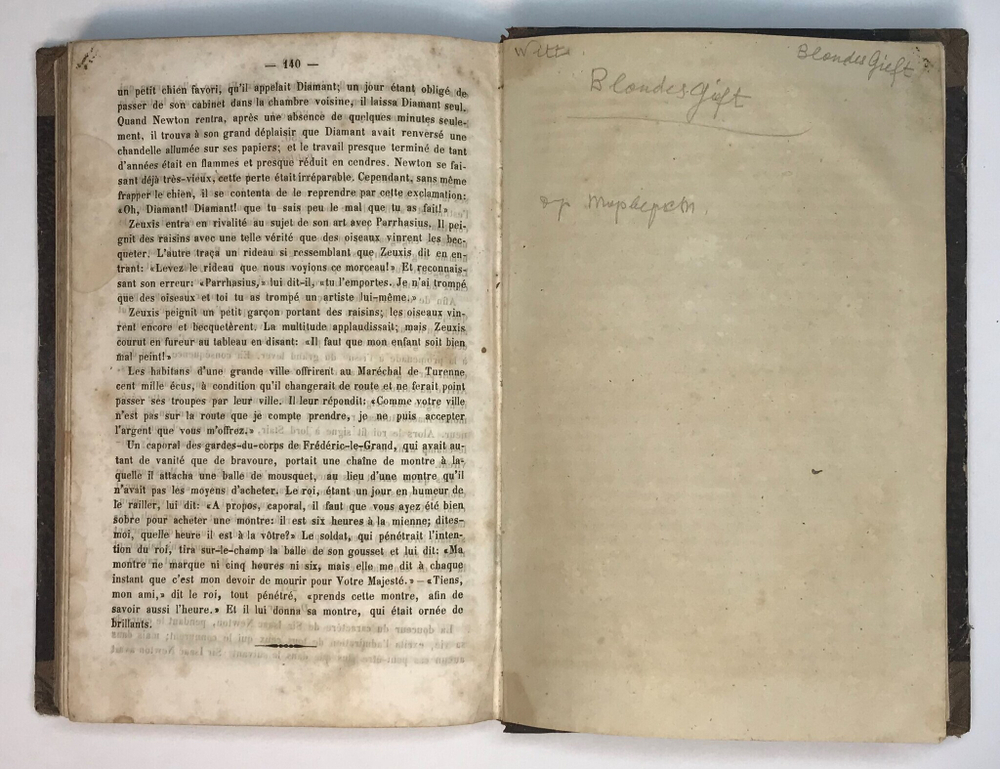 — 140 —
un petit chien favori, qu'il appelait Diamant; un jour étant obligé de
passer de son cabinet dans la chambre voisine, il laissa Diamant seul.
Quand Newton rentra, après une absence de quelques minutes seule-
ment, il trouva à son grand déplaisir que Diamant avait renversé une
chandelle allumée sur ses papiers; et le travail presque terminé de tant
d'années était en flammes et presque réduit en cendres. Newton se fai-
sant déjà très-vieux, cette perte était irréparable. Cependant, sans même
frapper le chien, il se contenta de le reprendre par cette exclamation:
«Oh, Diamant! Diamant! que tu sais peu le mal que tu as fait!»
Zeuxis entra en rivalité au sujet de son art avec Parrhasius. Il pei-
gnit des raisins avec une telle vérité que des oiseaux vinrent les bec-
queter. L'autre traça un rideau si ressemblant que Zeuxis dit en en-
trant: «Levez le rideau que nous voyions ce morceau!» Et reconnais-
sant son erreur: «Parrhasius,» lui dit-il, «tu l'emportes. Je n'ai trompé
que des oiseaux et toi tu as trompé un artiste lui-même.»
Zeuxis peignit un petit garçon portant des raisins; les oiseaux vin-
rent encore et becquetèrent. La multitude applaudissait; mais Zeuxis
courut en fureur au tableau en disant: «Il faut que mon enfant soit bien
mal peint!»
Les habitans d'une grande ville offrirent au Maréchal de Turenne
cent mille écus, à condition qu'il changerait de route et ne ferait point
passer ses troupes par leur ville. Il leur répondit: «Comme votre ville
n'est pas sur la route que je compte prendre, je ne puis accepter
l'argent que vous m'offrez.»
Un caporal des gardes-du-corps de Frédéric-le-Grand, qui avait au-
tant de vanité que de bravoure, portait une chaîne de montre à la-
quelle il attacha une balle de mousquet, au lieu d'une montre qu'il
n'avait pas les moyens d'acheter. Le roi, étant un jour en humeur de
le railler, lui dit: «A propos, caporal, il faut que vous ayez été bien
sobre pour acheter une montre: il est six heures à la mienne; dites-
moi, quelle heure il est à la vôtre?» Le soldat, qui pénétrait l'inten-
tion du roi, tira sur-le-champ la balle de son gousset et lui dit: «Ma
montre ne marque ni cinq heures ni six, mais elle me dit à chaque
instant que c'est mon devoir de mourir pour Votre Majesté.» — «Tiens,
mon ami,» dit le roi, tout pénétré, «prends cette montre, afin de
savoir aussi l'heure.» Et il lui donna sa montre, qui était ornée de
brillants.
Witte
Blondes Gieft
Blondes Gift